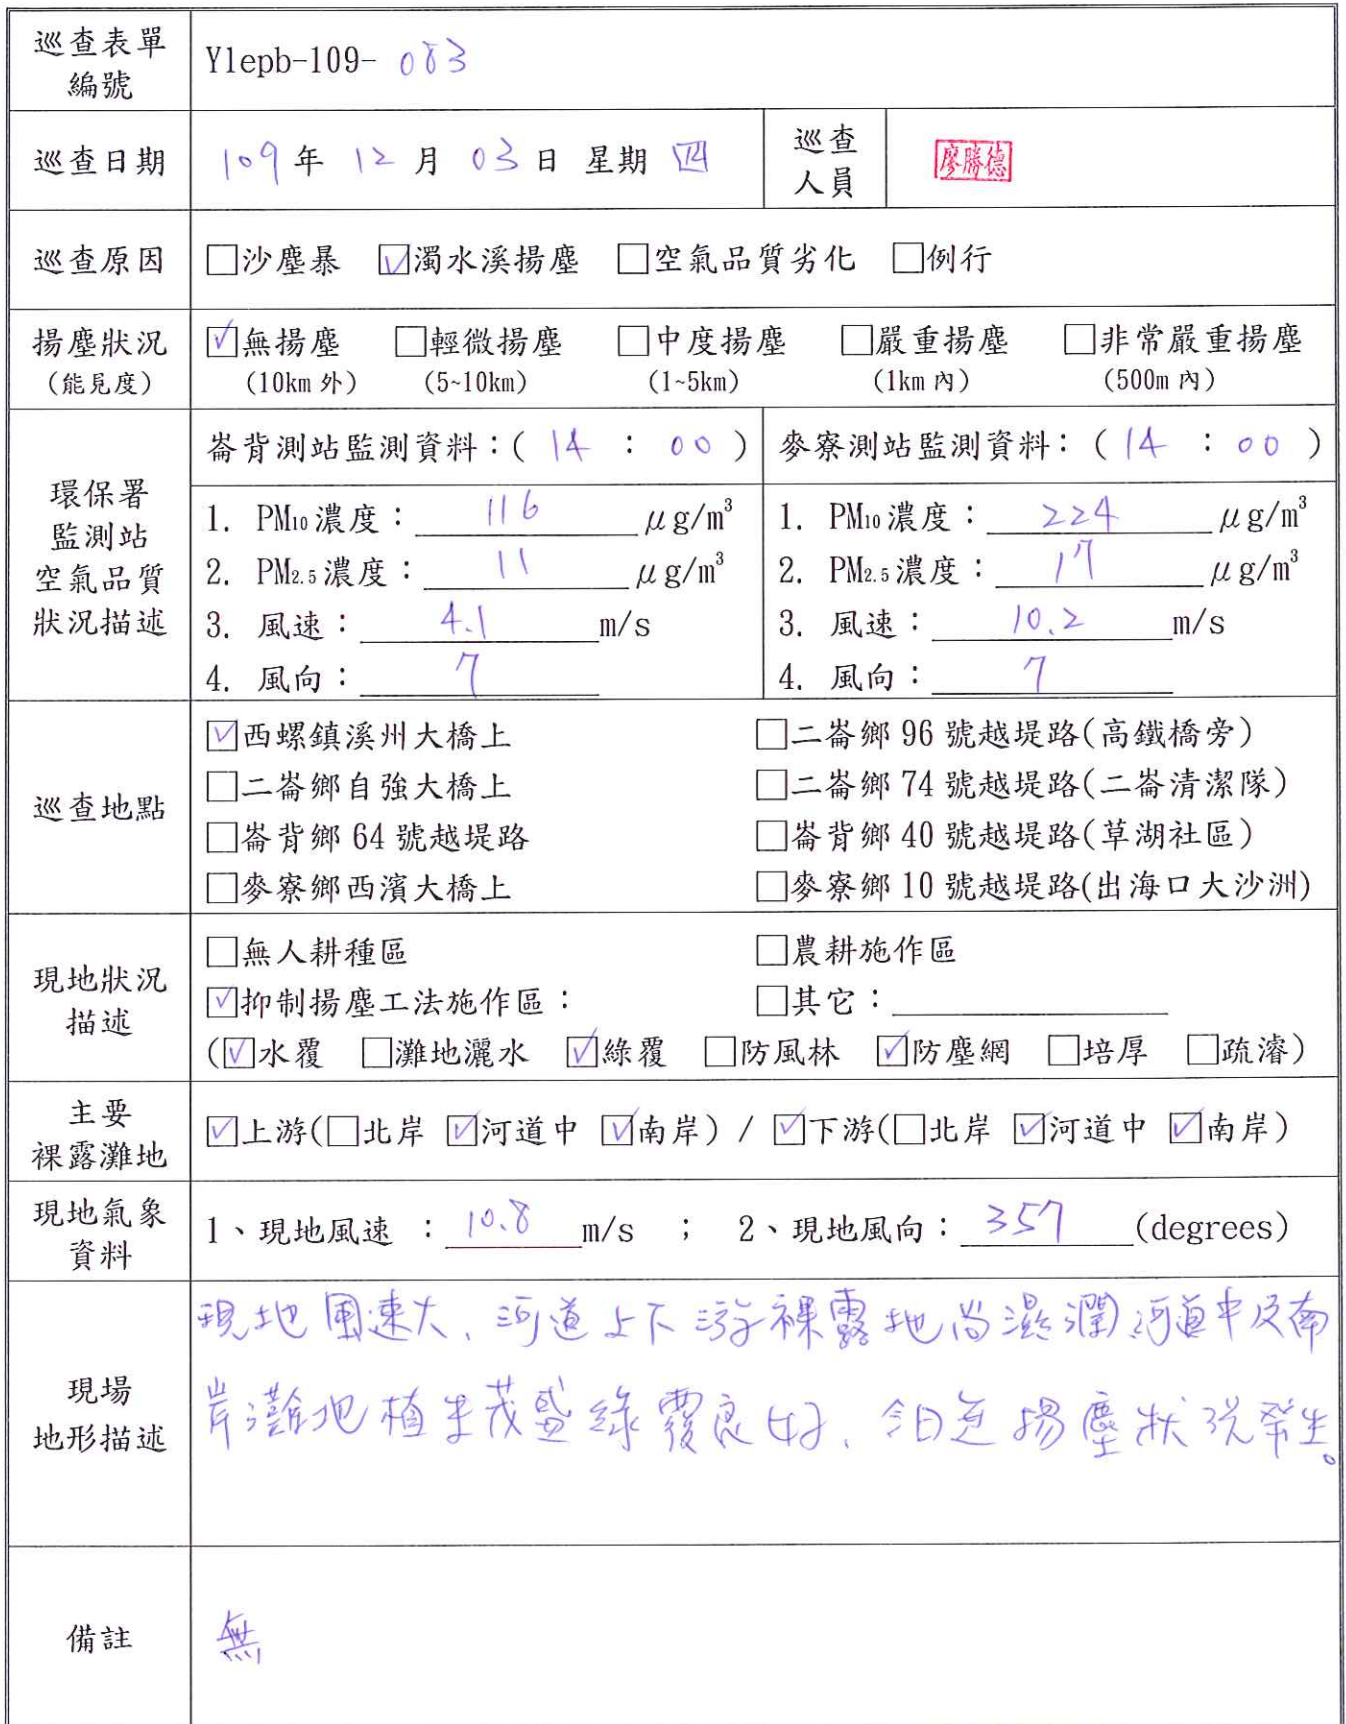 巡查表單
編號
Ylepb-109- 083
巡查日期
109 年 12 月 03 日 星期 四
巡查
人員
廖勝德
巡查原因
□沙塵暴 ☑濁水溪揚塵 □空氣品質劣化 □例行
揚塵狀況
(能見度)
☑無揚塵 □輕微揚塵 □中度揚塵 □嚴重揚塵 □非常嚴重揚塵
(10km 外) (5~10km) (1~5km) (1km 內) (500m 內)
環保署
監測站
空氣品質
狀況描述
崙背測站監測資料：( 14 : 00 )
1. PM10 濃度：116 μg/m³
2. PM2.5 濃度：11 μg/m³
3. 風速：4.1 m/s
4. 風向：7
麥寮測站監測資料：( 14 : 00 )
1. PM10 濃度：224 μg/m³
2. PM2.5 濃度：17 μg/m³
3. 風速：10.2 m/s
4. 風向：7
巡查地點
☑西螺鎮溪州大橋上 □二崙鄉 96 號越堤路(高鐵橋旁)
□二崙鄉自強大橋上 □二崙鄉 74 號越堤路(二崙清潔隊)
□崙背鄉 64 號越堤路 □崙背鄉 40 號越堤路(草湖社區)
□麥寮鄉西濱大橋上 □麥寮鄉 10 號越堤路(出海口大沙洲)
現地狀況
描述
□無人耕種區 □農耕施作區
☑抑制揚塵工法施作區： □其它：
(☑水覆 □灘地灑水 ☑綠覆 □防風林 ☑防塵網 □培厚 □疏濬)
主要
裸露灘地
☑上游(□北岸 ☑河道中 ☑南岸) / ☑下游(□北岸 ☑河道中 ☑南岸)
現地氣象
資料
1、現地風速 ：10.8 m/s ； 2、現地風向：357 (degrees)
現場
地形描述
現地風速大、河道上下游裸露地尚濕潤河道中及南
岸灘地植生茂盛綠覆良好、今日無揚塵狀況發生。
備註
無